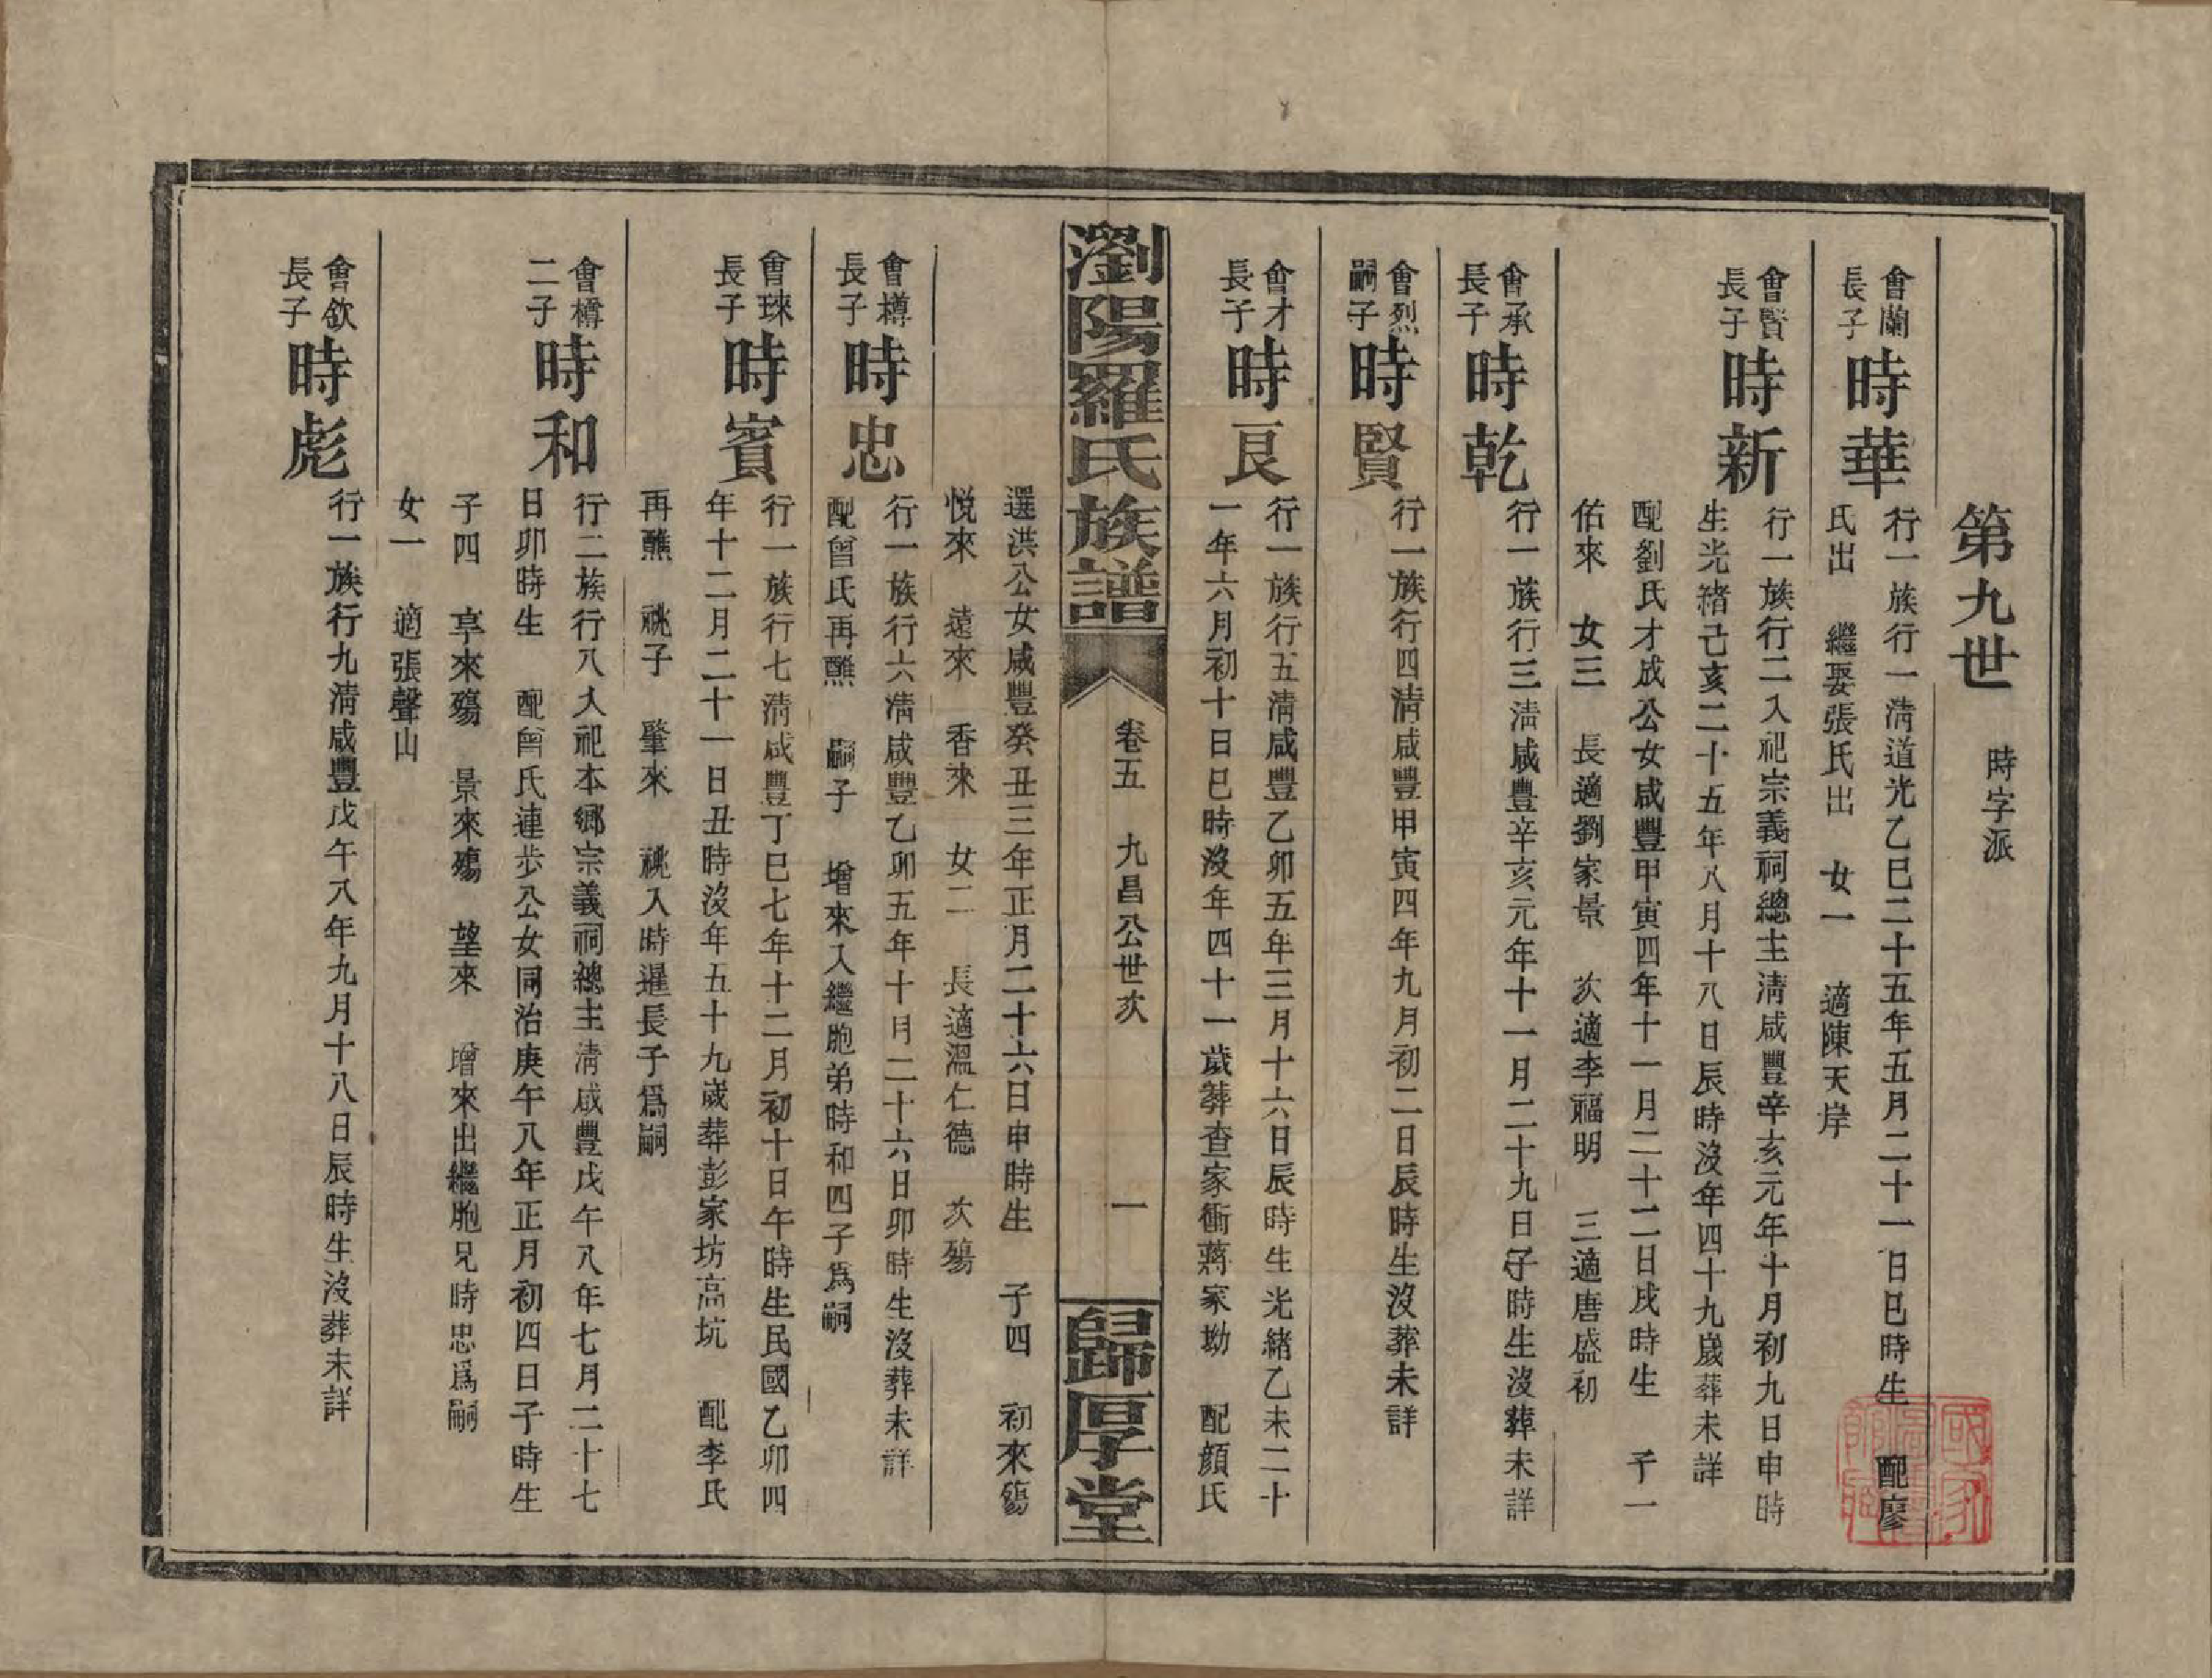 第九世 時字派
會蘭
長子
時華
行一族行一淸道光乙巳二十五年五月二十一日巳時生 配廖
氏出 繼娶張氏出 女一 適陳天岸
會賢
長子
時新
行一族行二入祀宗義祠總主淸咸豐辛亥元年十月初九日申時
生光緒己亥二十五年八月十八日辰時沒年四十九歲葬未詳
配劉氏才成公女咸豐甲寅四年十一月二十二日戌時生 子一
佑來 女三 長適劉家景 次適李福明 三適唐盛初
會承
長子
時乾
行一族行三淸咸豐辛亥元年十一月二十九日子時生沒葬未詳
會烈
嗣子
時賢
行一族行四淸咸豐甲寅四年九月初二日辰時生沒葬未詳
會才
長子
時良
行一族行五淸咸豐乙卯五年三月十六日辰時生光緒乙未二十
一年六月初十日巳時沒年四十一歲葬查家衝蔣家坳 配顔氏
瀏陽羅氏族譜
卷五 九昌公世次
一
歸厚堂
選洪公女咸豐癸丑三年正月二十六日申時生 子四 初來殤
悅來 遠來 香來 女二 長適溫仁德 次殤
會樽
長子
時忠
行一族行六淸咸豐乙卯五年十月二十六日卯時生沒葬未詳
配曾氏再醮 嗣子 增來入繼胞弟時和四子爲嗣
會琜
長子
時賓
行一族行七淸咸豐丁巳七年十二月初十日午時生民國乙卯四
年十二月二十一日丑時沒年五十九歲葬彭家坊高坑 配李氏
再醮 祧子 肇來 祧入時暹長子爲嗣
會樽
二子
時和
行二族行八入祀本鄉宗義祠總主淸咸豐戊午八年七月二十七
日卯時生 配曾氏連步公女同治庚午八年正月初四日子時生
子四 享來殤 景來殤 望來 增來出繼胞兄時忠爲嗣
女一 適張聲山
會欽
長子
時彪
行一族行九淸咸豐戊午八年九月十八日辰時生沒葬未詳